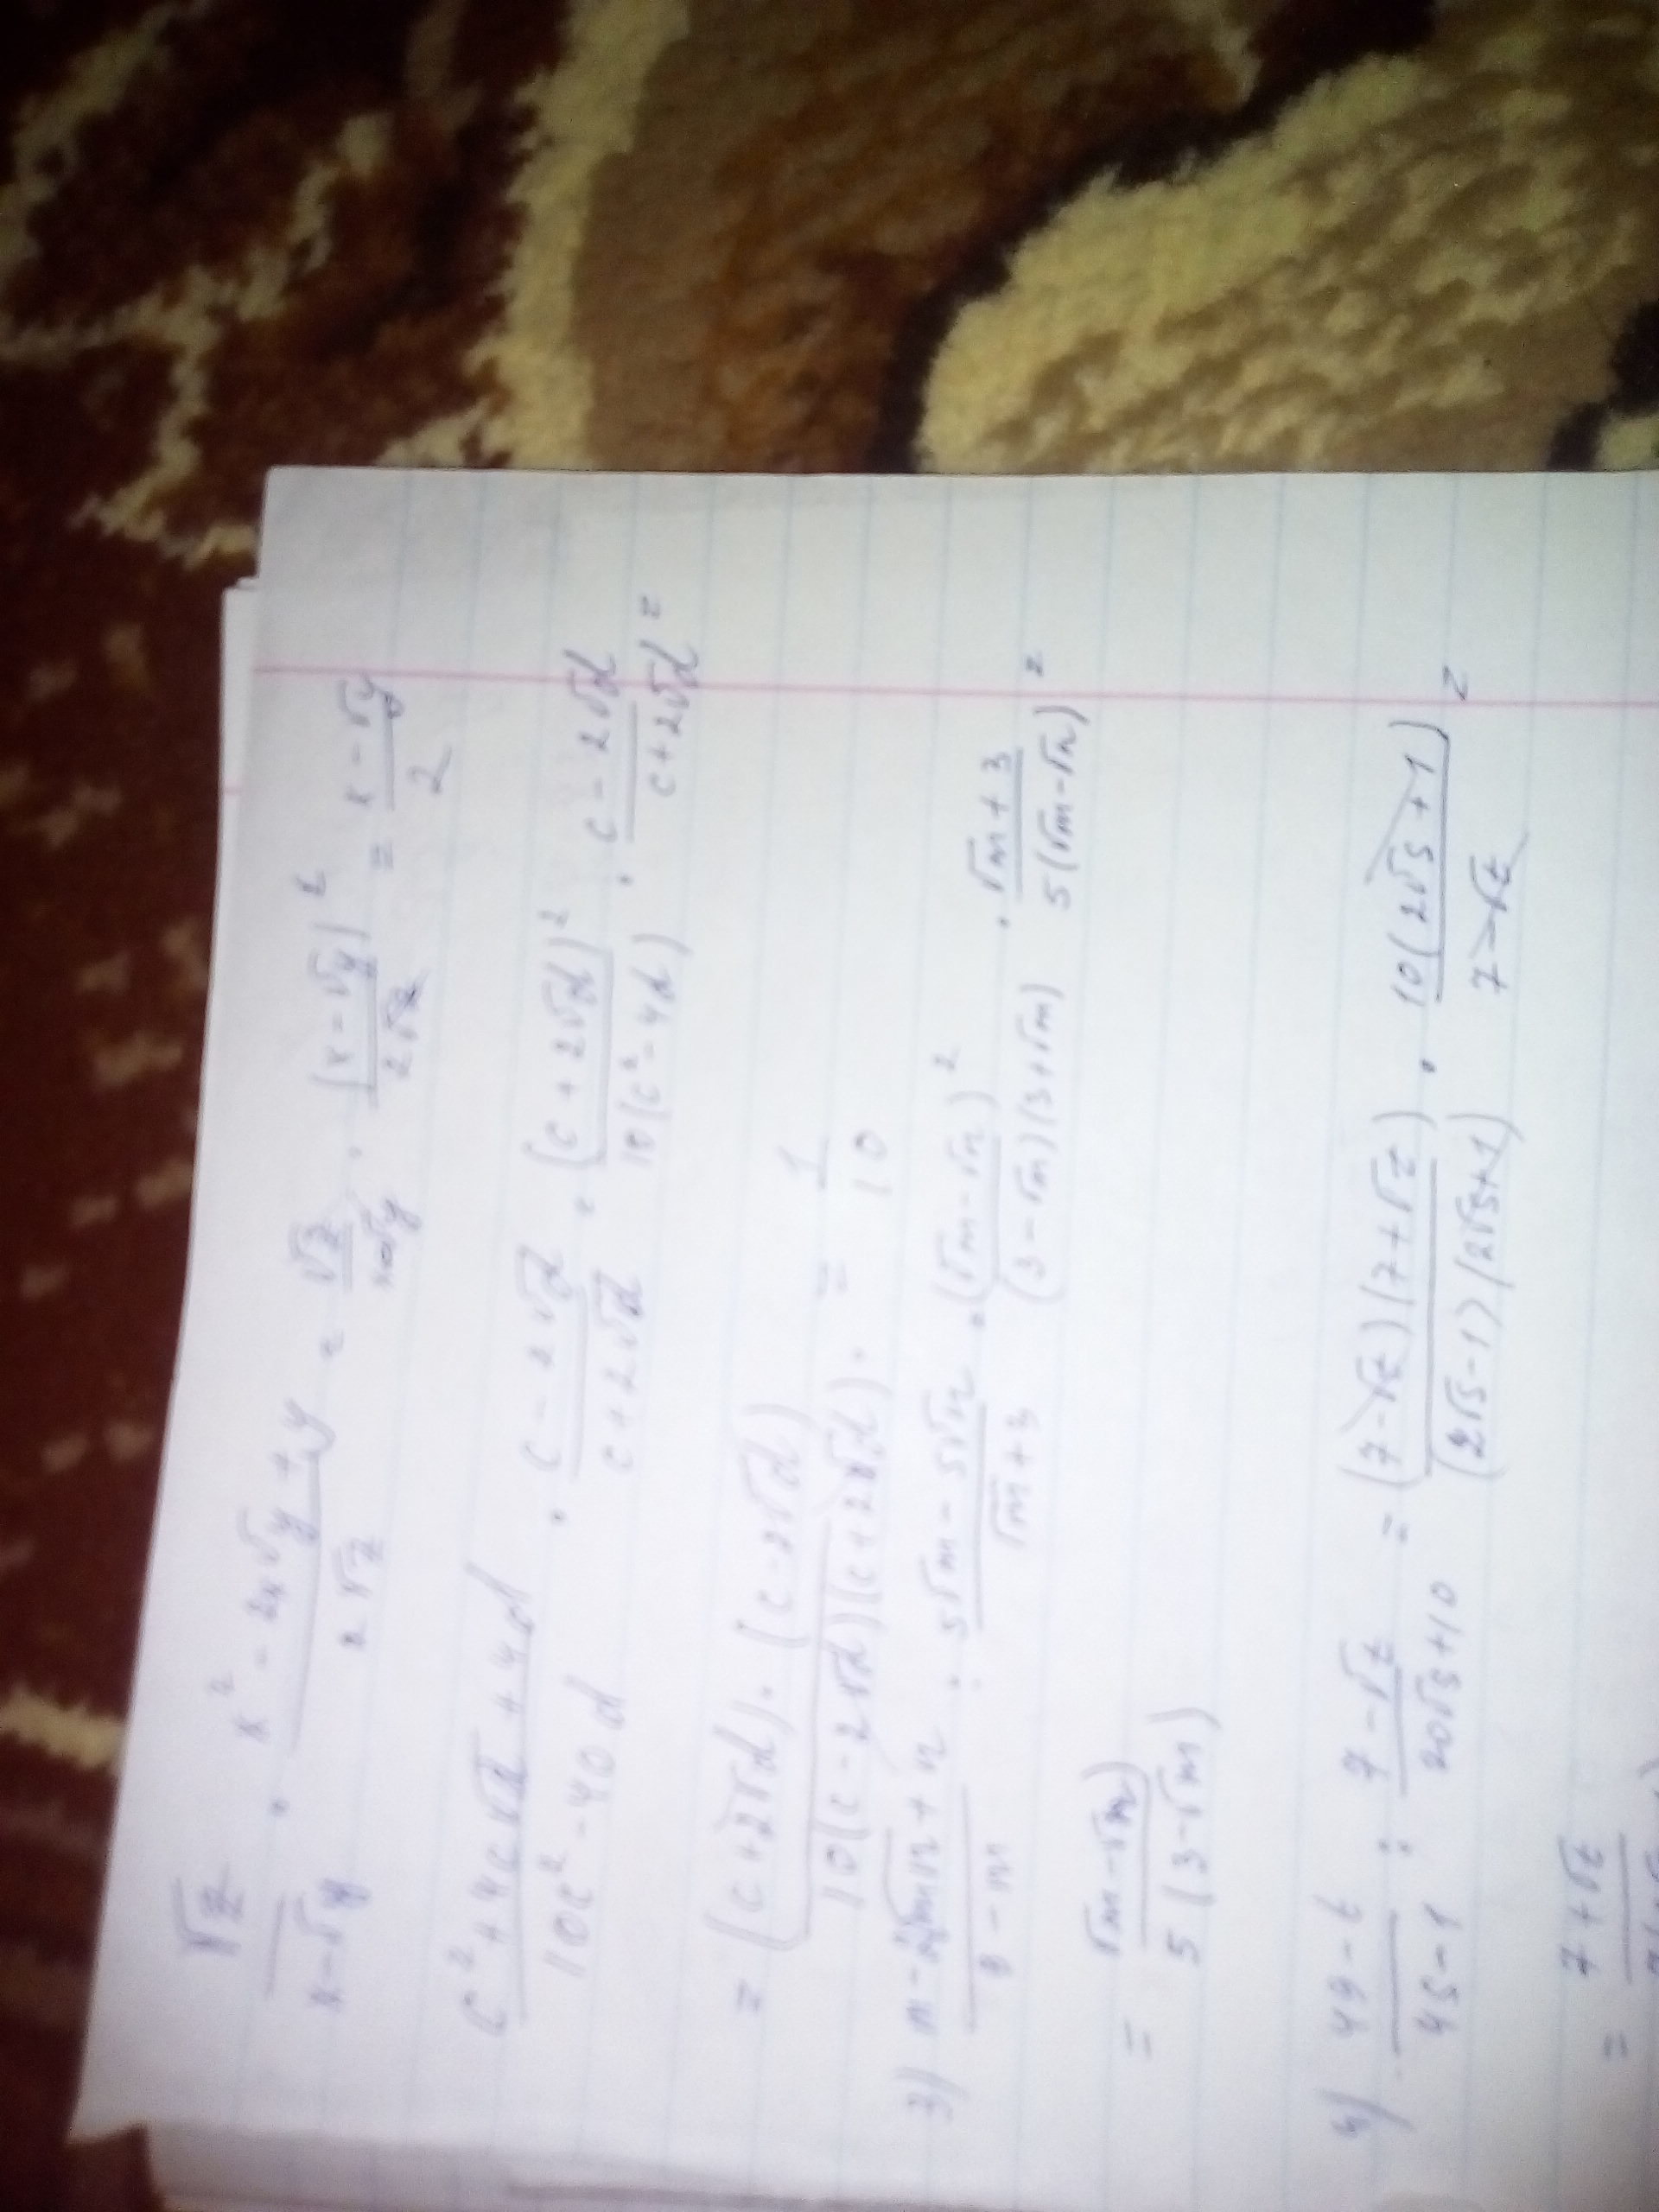 √z/(x-√y) · (x² - 2x√y + y)/(2√z) = √z/(x-√y) · (x-√y)²/(2√z) = (x-√y)/2
(c² + 4c√d + 4d)/(10c² - 40d) · (c - 2√d)/(c + 2√d) = (c + 2√d)²/(10(c² - 4d)) · (c - 2√d)/(c + 2√d) =
= ((c + 2√d) · (c - 2√d))/(10(c - 2√d)(c + 2√d)) · = 1/10
3) (m - 2√mn + n)/(9 - m) : (5√m - 5√n)/(√m + 3) · (√m - √n)²/((3 - √m)(3 + √m)) · (√m + 3)/(5(√m - √n)) =
= (√m - √n)/(5(3 - √m))
4) (49 - t)/(4s - 1) : (7 - √t)/(20√s + 10) = ((7 - √t)(7 + √t))/((2√s - 1)(2√s + 1)) · 10(2√s + 1)/(7 - √t) =
= 7 + √t